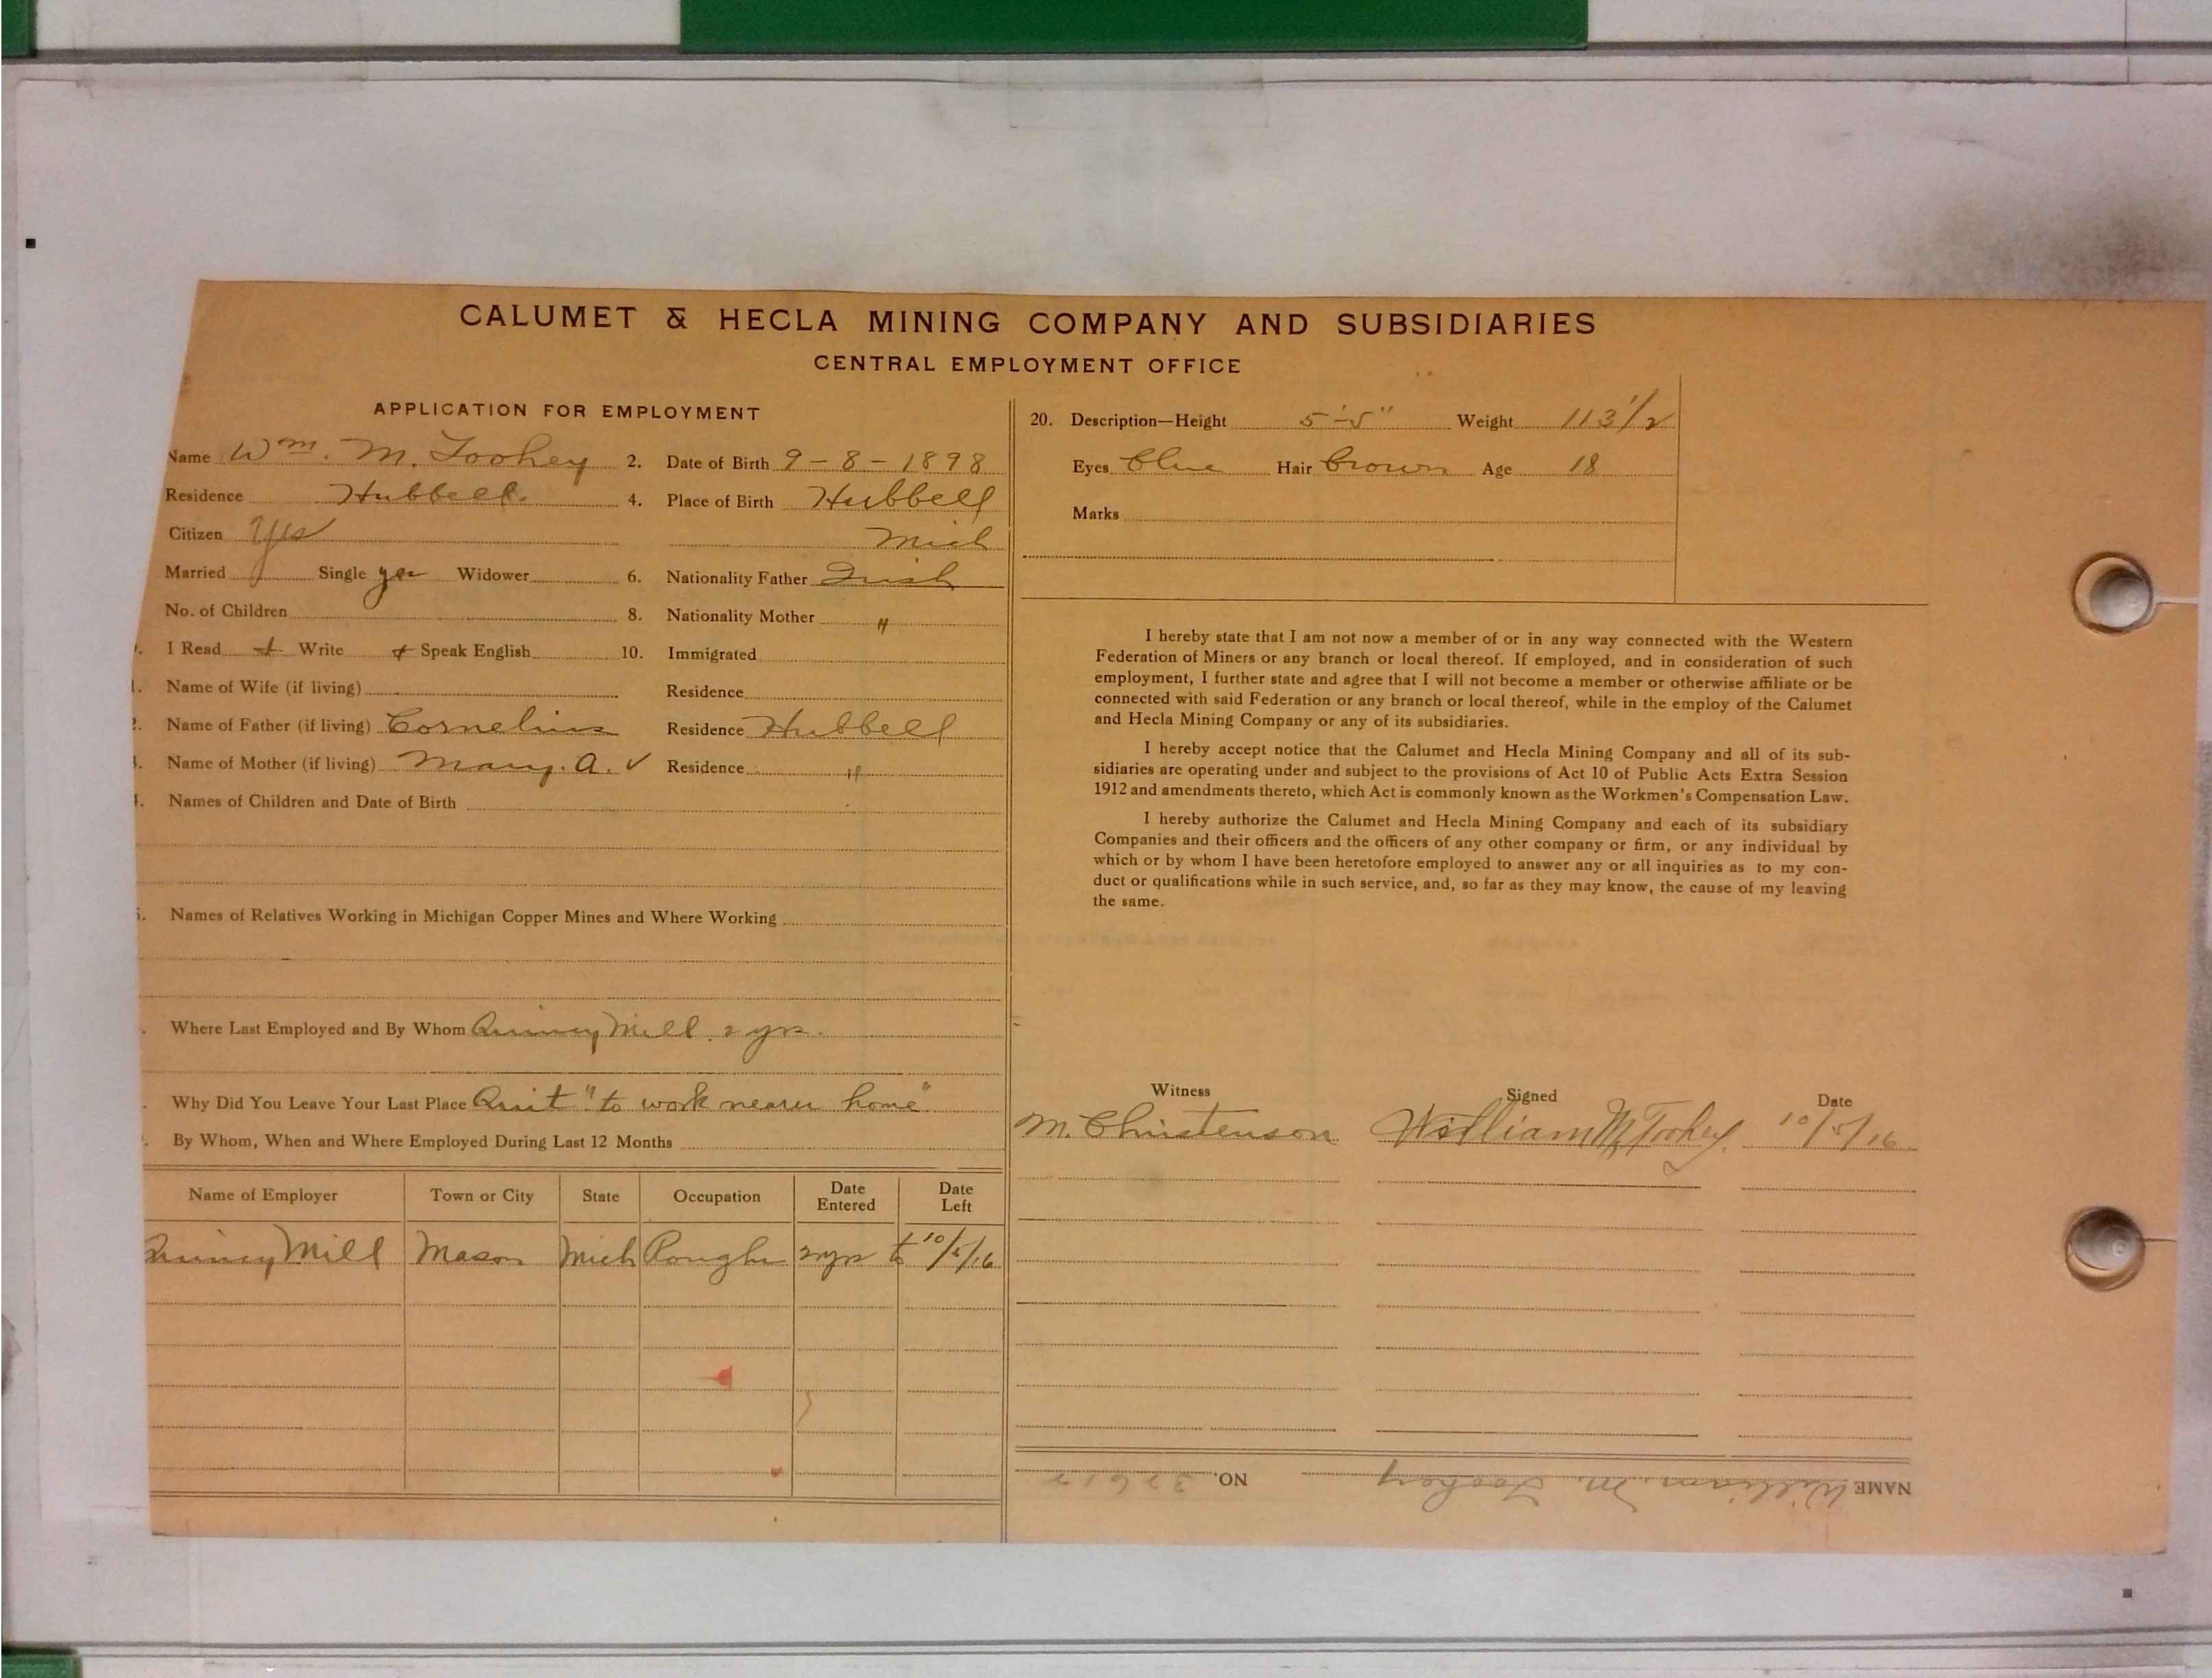 CALUMET & HECLA MINING COMPANY AND SUBSIDIARIES
CENTRAL EMPLOYMENT OFFICE
APPLICATION FOR EMPLOYMENT
Name Wm. M. Toohey 2. Date of Birth 9-8-1898
Residence Hubbell. 4. Place of Birth Hubbell
Citizen Yes Mich
Married Single yes Widower 6. Nationality Father Irish
No. of Children 8. Nationality Mother "
I Read + Write + Speak English 10. Immigrated
Name of Wife (if living) Residence
Name of Father (if living) Cornelius Residence Hubbell
Name of Mother (if living) Mary. A. ✓ Residence "
Names of Children and Date of Birth
Names of Relatives Working in Michigan Copper Mines and Where Working
Where Last Employed and By Whom Quincy Mill. 2 yrs.
Why Did You Leave Your Last Place Quit "to work nearer home"
By Whom, When and Where Employed During Last 12 Months
Name of Employer Town or City State Occupation Date Entered Date Left
Quincy Mill Mason Mich 2 yrs to 10/5/16
20. Description—Height 5'-5" Weight 113 1/2
Eyes Blue Hair Brown Age 18
Marks
I hereby state that I am not now a member of or in any way connected with the Western
Federation of Miners or any branch or local thereof. If employed, and in consideration of such
employment, I further state and agree that I will not become a member or otherwise affiliate or be
connected with said Federation or any branch or local thereof, while in the employ of the Calumet
and Hecla Mining Company or any of its subsidiaries.
I hereby accept notice that the Calumet and Hecla Mining Company and all of its sub-
sidiaries are operating under and subject to the provisions of Act 10 of Public Acts Extra Session
1912 and amendments thereto, which Act is commonly known as the Workmen's Compensation Law.
I hereby authorize the Calumet and Hecla Mining Company and each of its subsidiary
Companies and their officers and the officers of any other company or firm, or any individual by
which or by whom I have been heretofore employed to answer any or all inquiries as to my con-
duct or qualifications while in such service, and, so far as they may know, the cause of my leaving
the same.
Witness Signed Date
M. Christenson William M Toohey. 10/5/16
NAME William. M. Toohey NO.